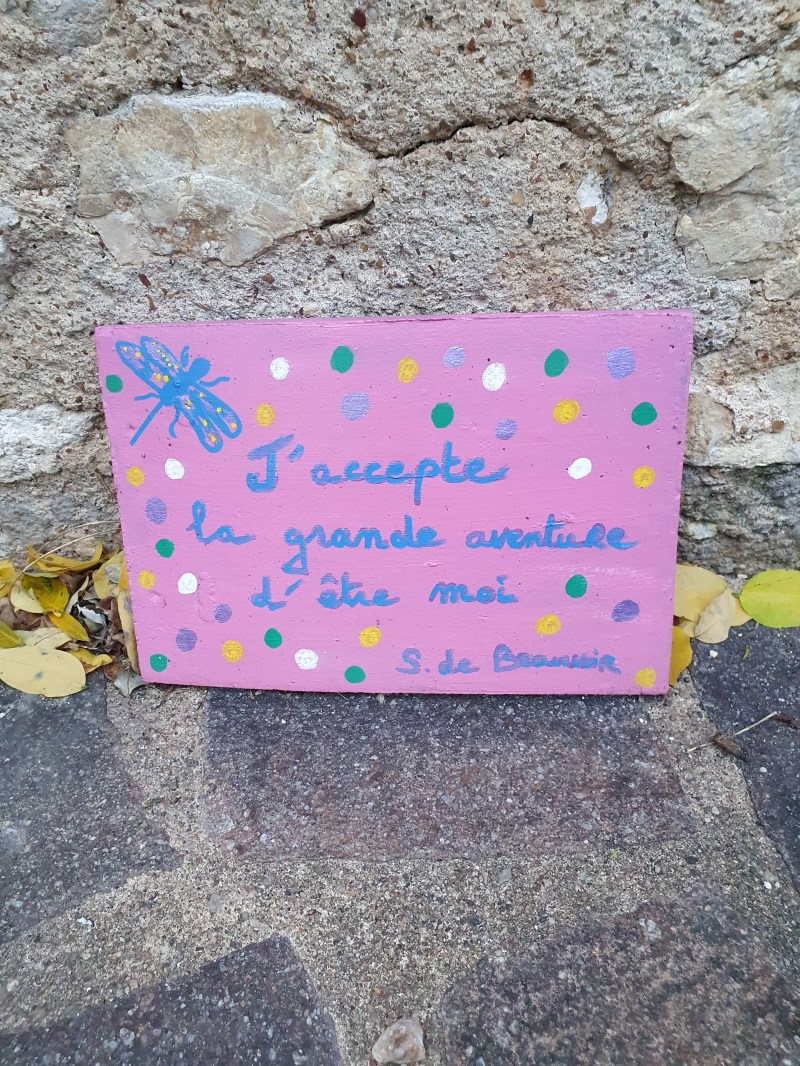 J'accepte
la grande aventure
d'être moi
S. de Beauvoir